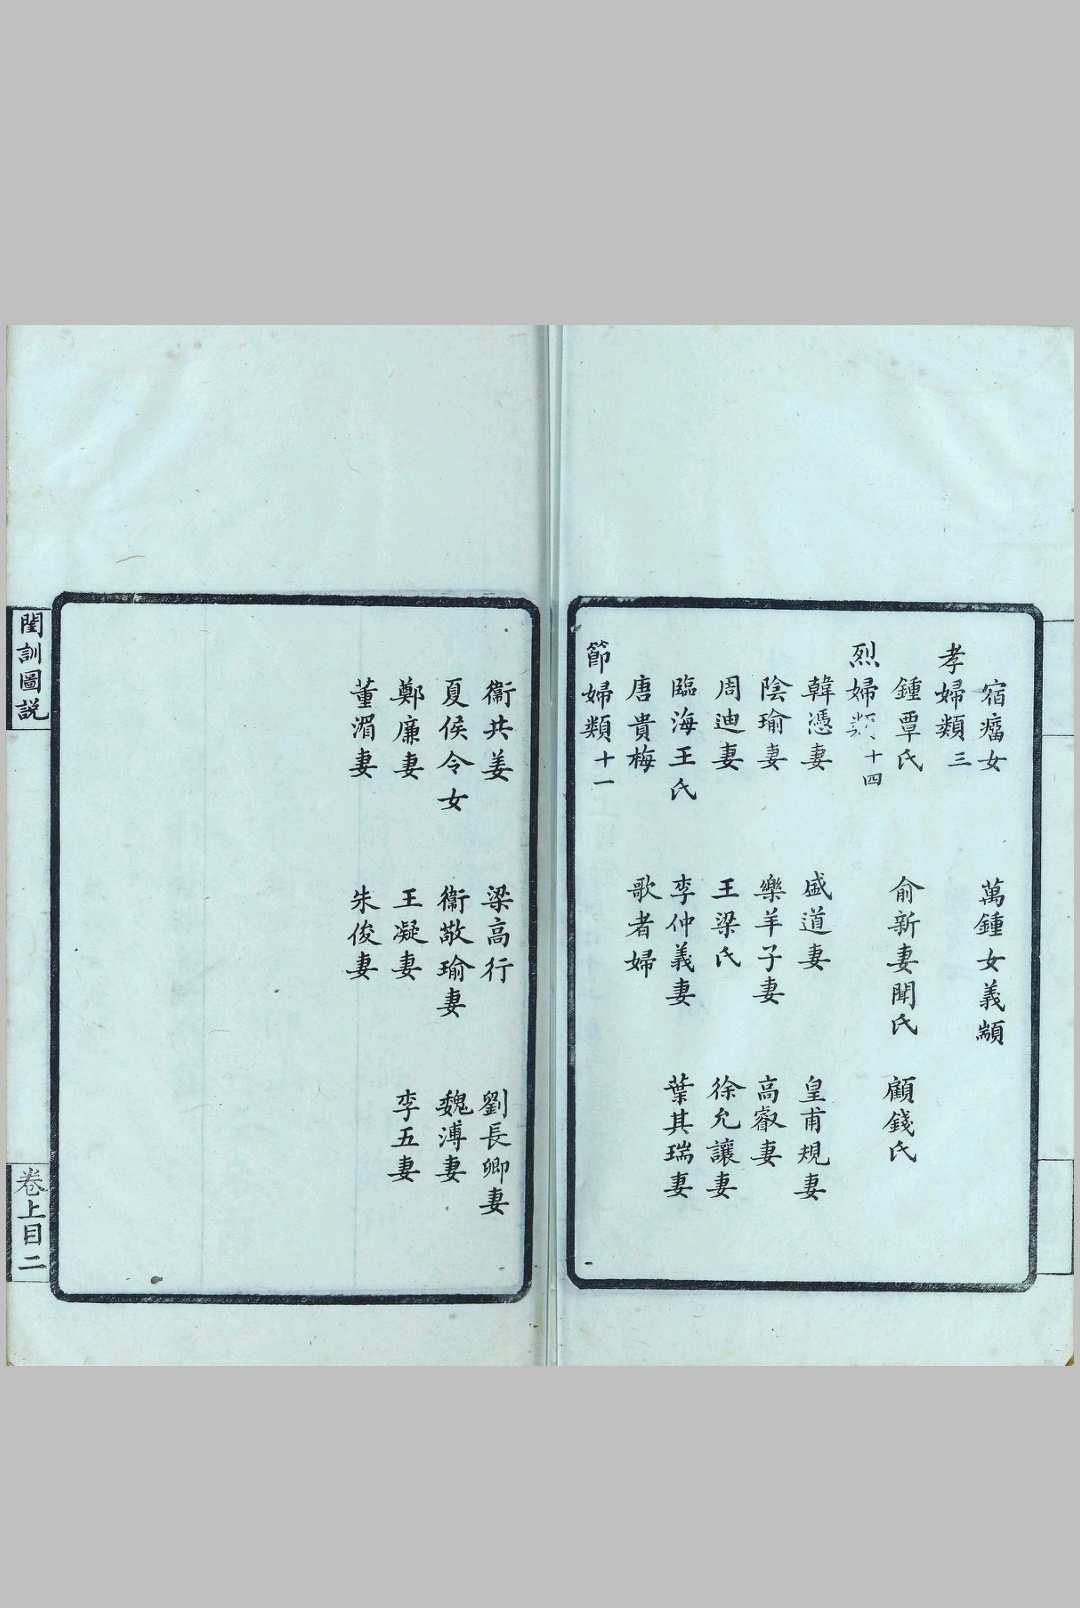 宿瘤女 萬鍾女義顓
孝婦類三
鍾覃氏 俞新妻聞氏 顧錢氏
烈婦類十四
韓憑妻 盛道妻 皇甫規妻
陰瑜妻 樂羊子妻 高叡妻
周迪妻 王梁氏 徐允讓妻
臨海王氏 李仲義妻 葉其瑞妻
唐貴梅 歌者婦
節婦類十一
衞共姜 梁高行 劉長卿妻
夏侯令女 衞敬瑜妻 魏溥妻
鄭廉妻 王凝妻 李五妻
董湄妻 朱俊妻
閨訓圖説
卷上目二